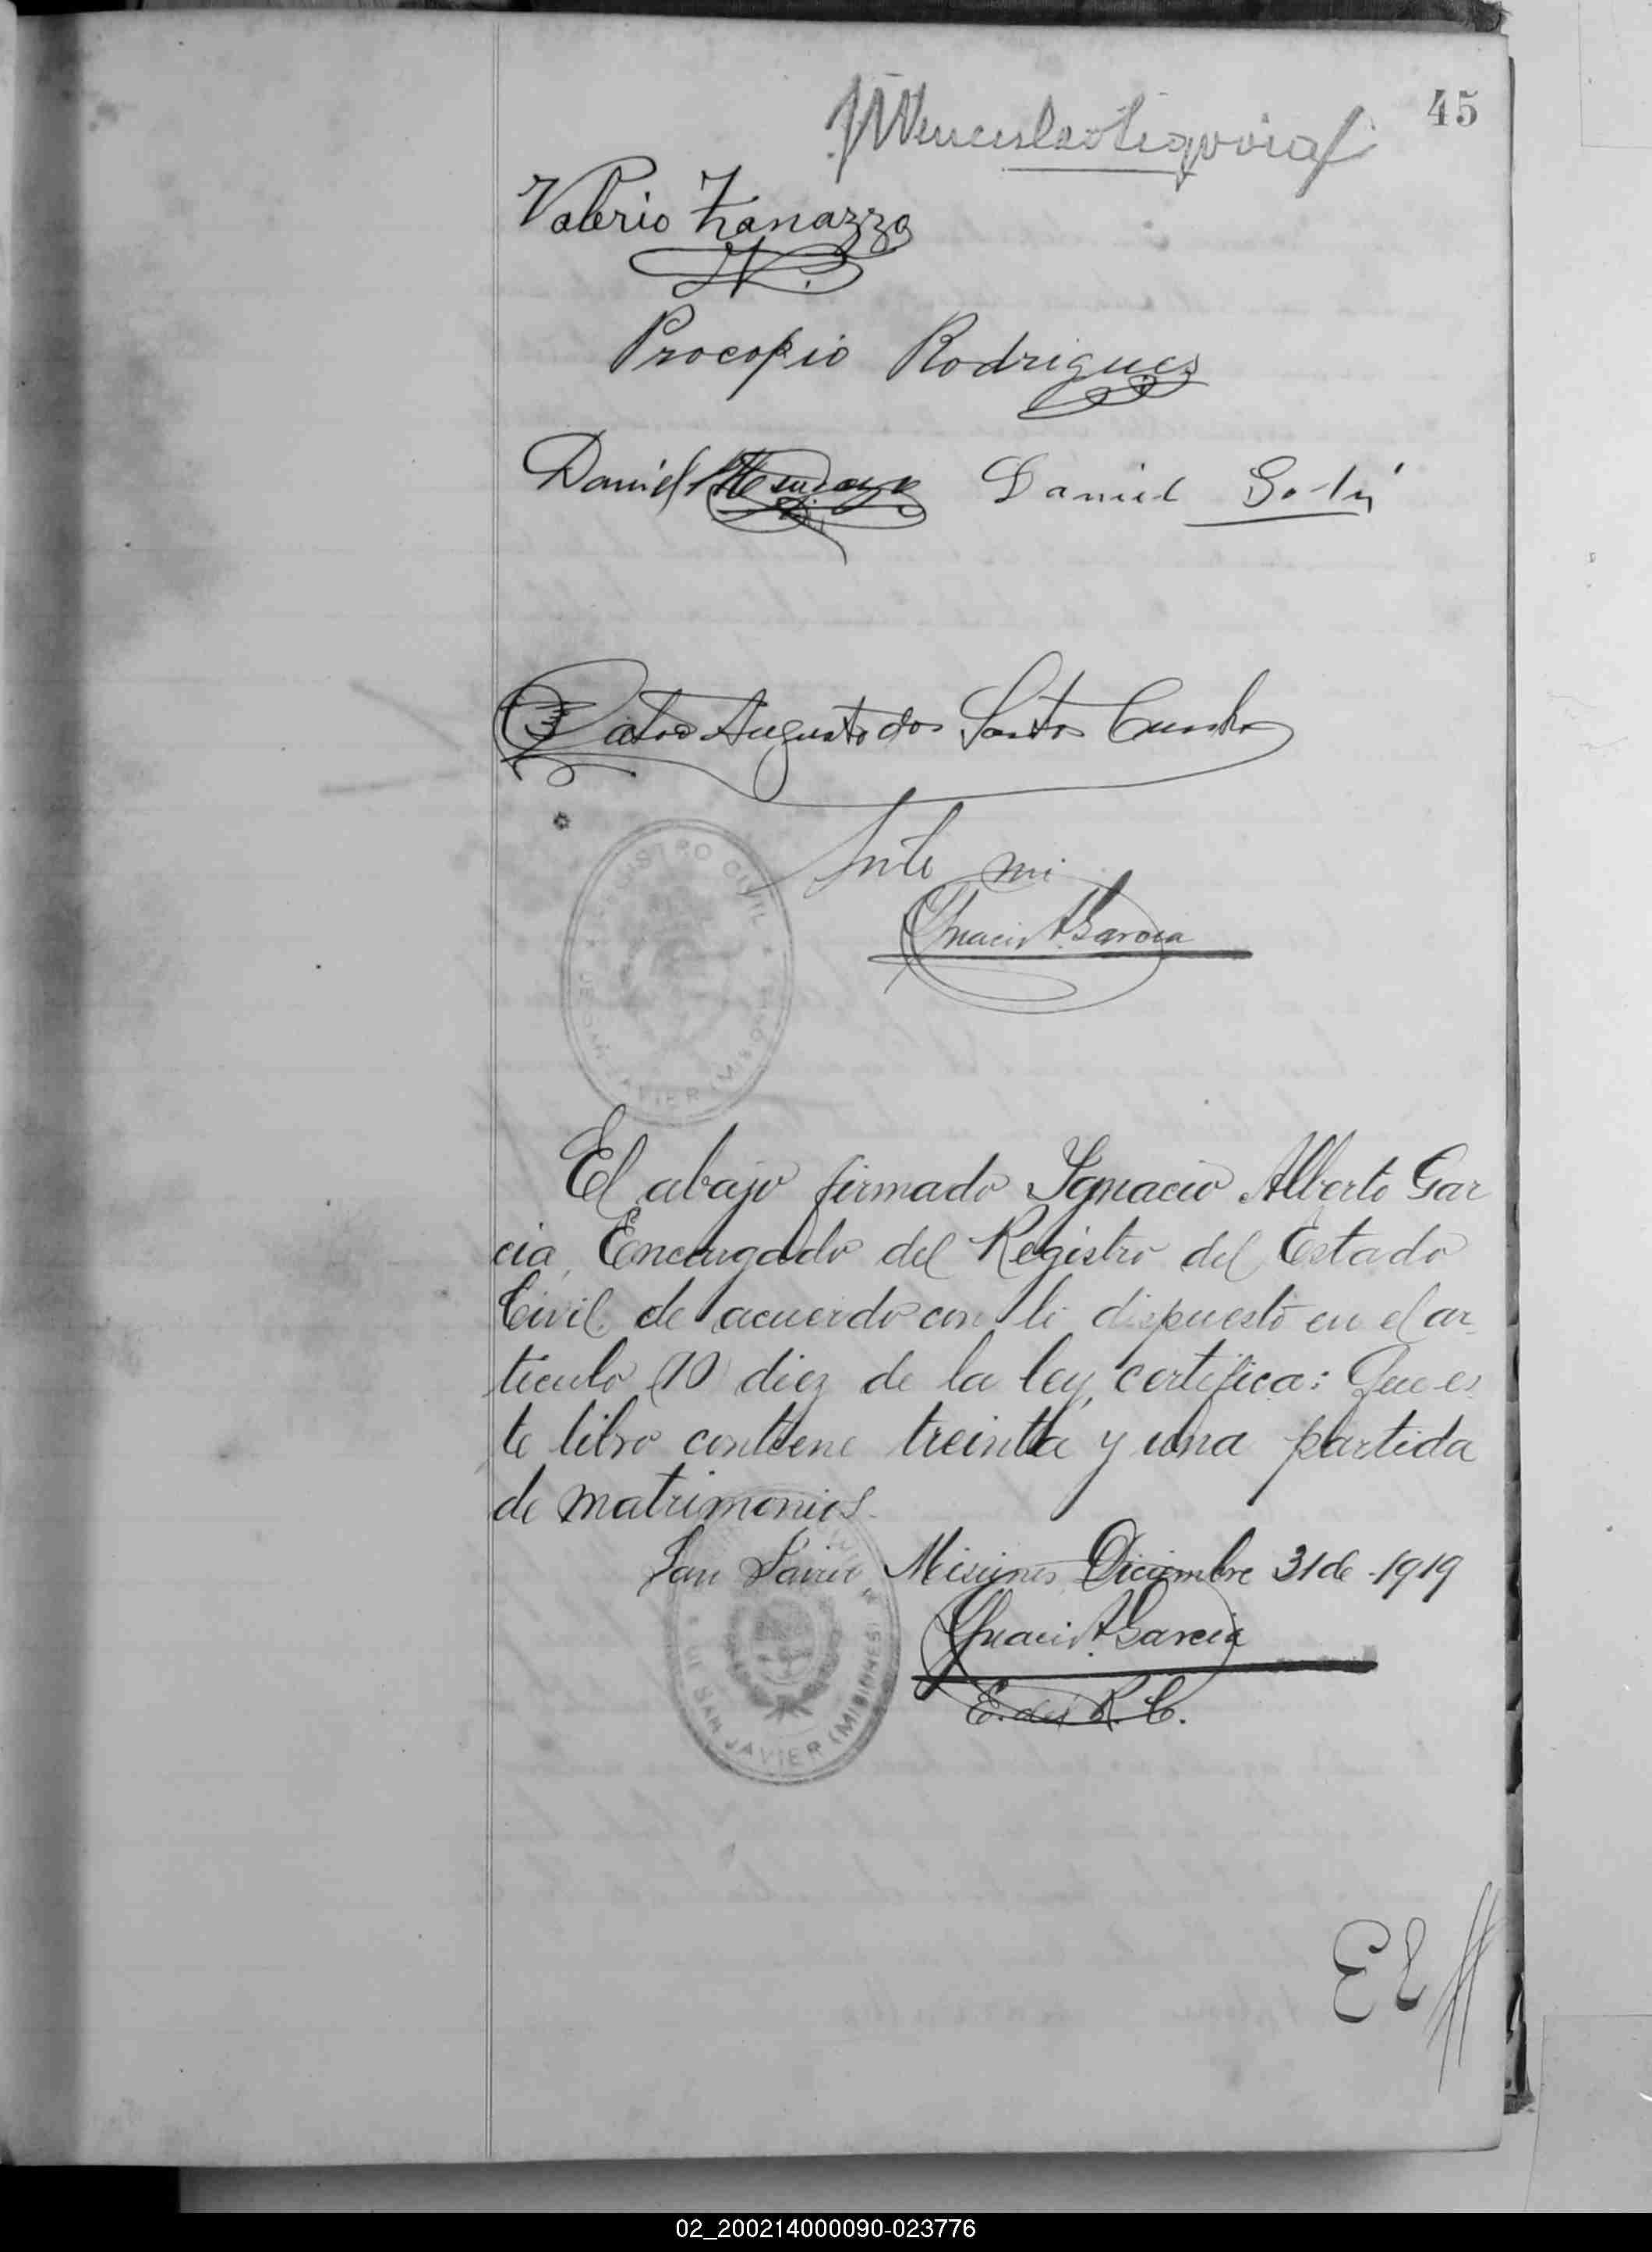 45
Valerio Zanazzo
Procopio Rodrigues
Daniel Mendoza Daniel
Augusto dos Santos Cunha
Ante mi
Ignacio A. Garcia
REGISTRO CIVIL
DE SAN JAVIER (MISIONES)
El abajo firmado Ignacio Alberto Gar
cia, Encargado del Registro del Estado
Civil de acuerdo con lo dispuesto en el ar-
ticulo (10) diez de la ley, certifica: Que es
te libro contiene treinta y una partida
de matrimonios.
San Javier, Misiones, Diciembre 31 de 1919
Ignacio A. Garcia
E. del R. C.
DE SAN JAVIER (MISIONES)
02_200214000090-023776